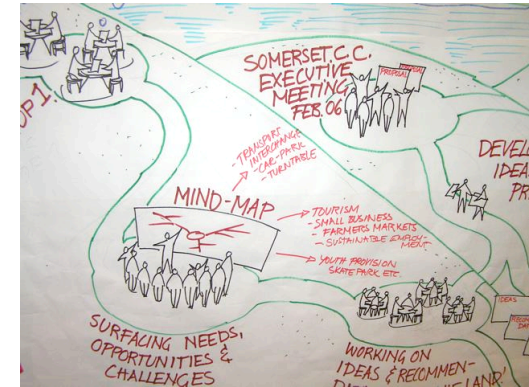 SOMERSET C.C.
EXECUTIVE
MEETING
FEB. 06
PROPOSAL
TRANSPORT
INTERCHANGE
- CAR-PARK
- TURNTABLE
MIND-MAP
TOURISM
- SMALL BUSINESS
FARMERS MARKETS
- SUSTAINABLE EMPLOY-
MENT
YOUTH PROVISION
SKATE PARK ETC.
DEVEL
IDEA
PR
OP 1.
IDEAS
SURFACING NEEDS,
OPPORTUNITIES &
CHALLENGES
WORKING ON
IDEAS & RECOMMEN-
LAND'